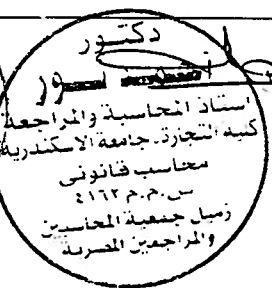 دكتور
استاذ المحاسبة والمراجعة
كلية التجارة ـ جامعة الاسكندرية
محاسب قانونى
س.م.م ٤١٦٢
زميل جمعية المحاسبين
والمراجعين المصرية